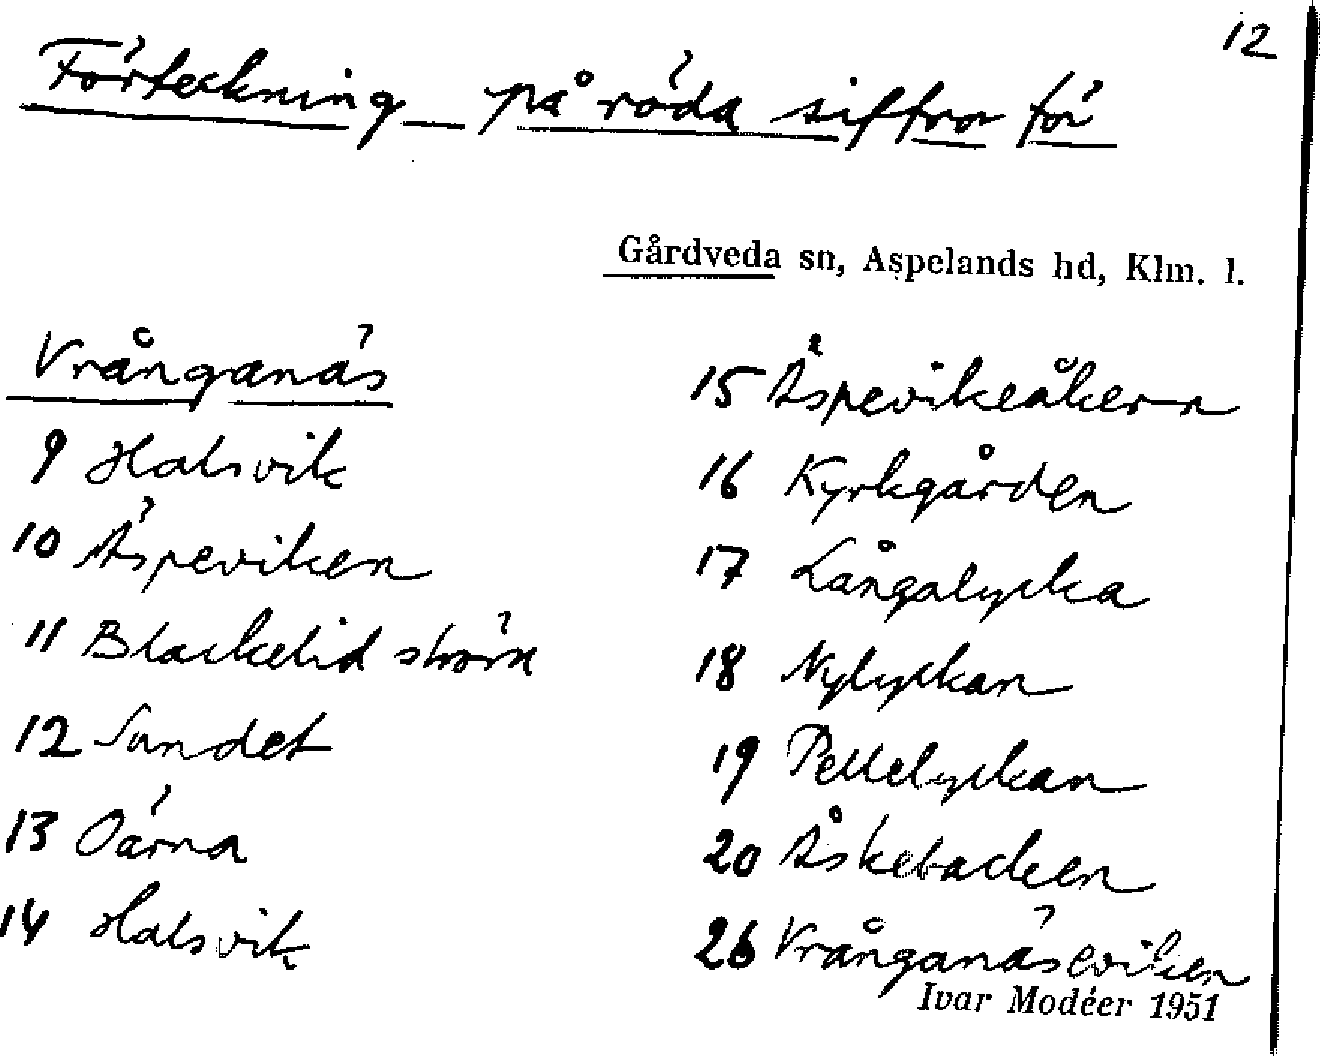 12
Förteckning på röda siffror för
Gårdveda sn, Aspelands hd, Klm. l.
Vrånganäs
9 Halsvik
10 Äspeviken
11 Blackelidström
12 Sundet
13 Öarna
14 Halsvik
15 Äspevikeåkern
16 Kyrkgården
17 Långalycka
18 Nylyckan
19 Pellelyckan
20 Åskebacken
26 Vrånganäseviken
Ivar Modéer 1951